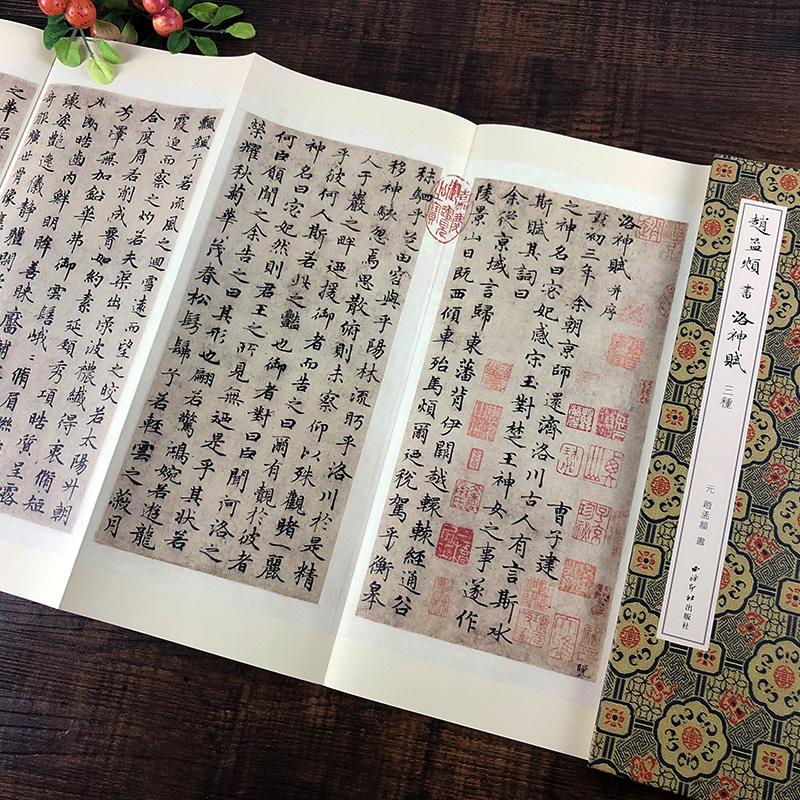 趙孟頫書 洛神賦 三種
元 趙孟頫 書
西泠印社出版社
洛神賦 并序
曹子建
黃初三年余朝京師還濟洛川古人有言斯水
之神名曰宓妃感宋玉對楚王神女之事遂作
斯賦其詞曰
余從京域言歸東藩背伊闕越轘轅經通谷
陵景山日既西傾車殆馬煩爾迺稅駕乎衡皋
秣駟乎芝田容與乎陽林流盻乎洛川於是精
移神駭忽焉思散俯則未察仰以殊觀睹一麗
人于巖之畔迺援御者而告之曰爾有覿於彼者
乎彼何人斯若此之豔也御者對曰臣聞河洛之
神名曰宓妃然則君王之所見無迺是乎其狀若
何臣願聞之余告之曰其形也翩若驚鴻婉若遊龍
榮耀秋菊華茂春松髣髴兮若輕雲之蔽月
飄飄兮若流風之迴雪遠而望之皎若太陽升朝
霞迫而察之灼若夫渠出淥波穠纖得衷脩短
合度肩若削成腰如約素延頸秀項皓質呈露
芳澤無加鉛華弗御雲髻峨〻脩眉聯
皓齒內鮮明眸善睞靨輔
瓌姿艷逸儀靜體閑
奇服曠世骨像應
之華琚